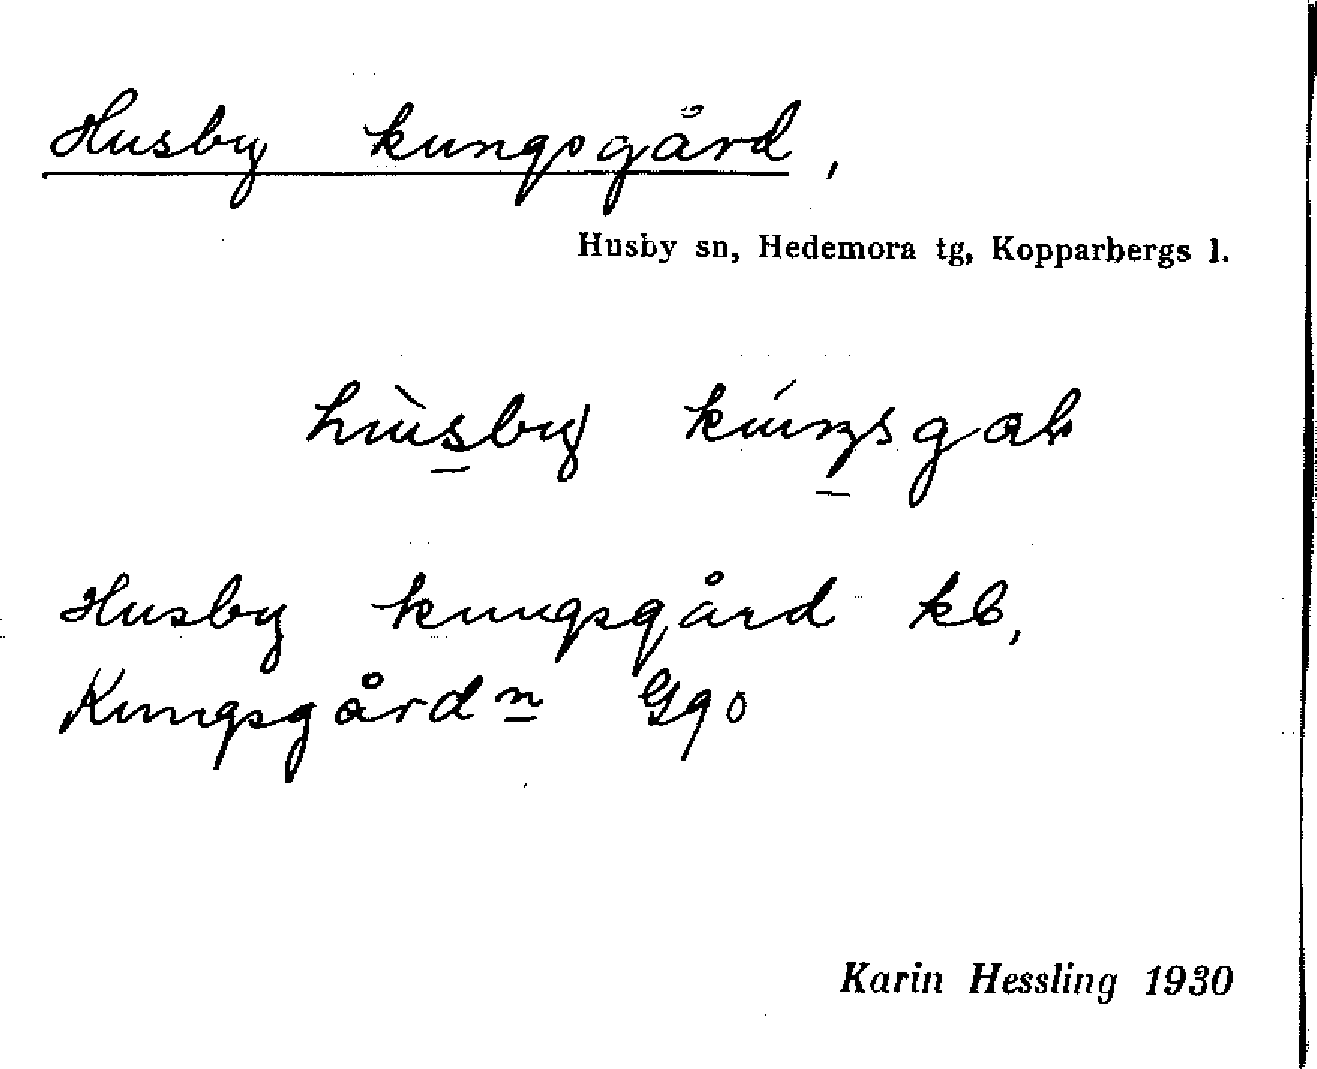 Husby kungsgård,
Husby sn, Hedemora tg, Kopparbergs l.
Husby kungsgård kb,
Kungsgårdn Gqo
Karin Hessling 1930